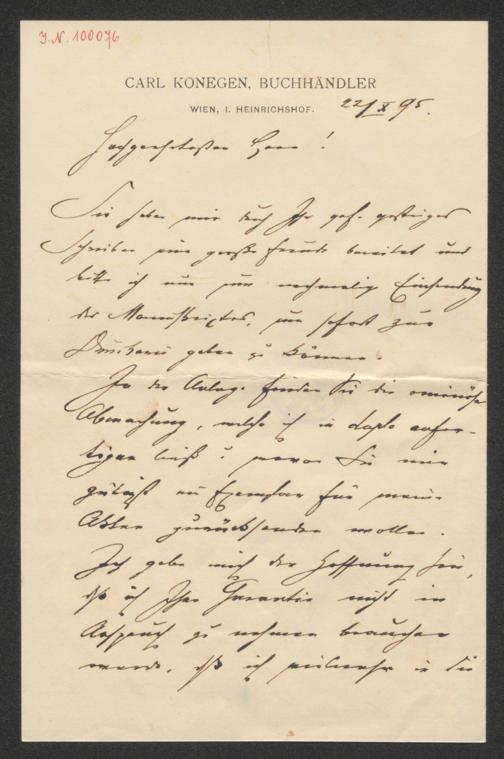 J.N. 100076
CARL KONEGEN, BUCHHÄNDLER
WIEN, I. HEINRICHSHOF.
22/X 95.
Hochgeehrtester Herr!
Sie haben mir durch Ihr gef. gestriges
Schreiben eine große Freude bereitet und
bitte ich nun um nochmalige Einsendung
des Manuskriptes, um sofort zur
Druckerei geben zu können.
In der Anlage finden Sie die ominöse
Abmachung, welche ich in duplo anfer-
tigen ließ & wovon Sie mir
gütigst ein Exemplar für meine
Akten zurücksenden wollen.
Ich gebe mich der Hoffnung hin,
daß ich Ihre Garantie nicht in
Anspruch zu nehmen brauchen
werde, daß ich vielmehr in die